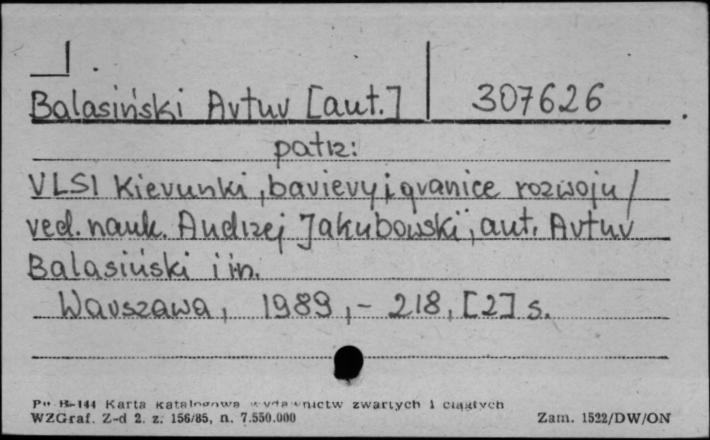 Balasiński Artur [aut.] 307626
patrz:
VLSI Kierunki, bariery i granice rozwoju /
red. nauk. Andrzej Jakubowski, aut. Artur
Balasiński i in.
Warszawa, 1989, - 218, [2] s.
Pu B-144 Karta katalogowa wydawnictw zwartych i ciągłych
WZGraf. Z-d 2. z. 156/85, n. 7.550.000 Zam. 1522/DW/ON